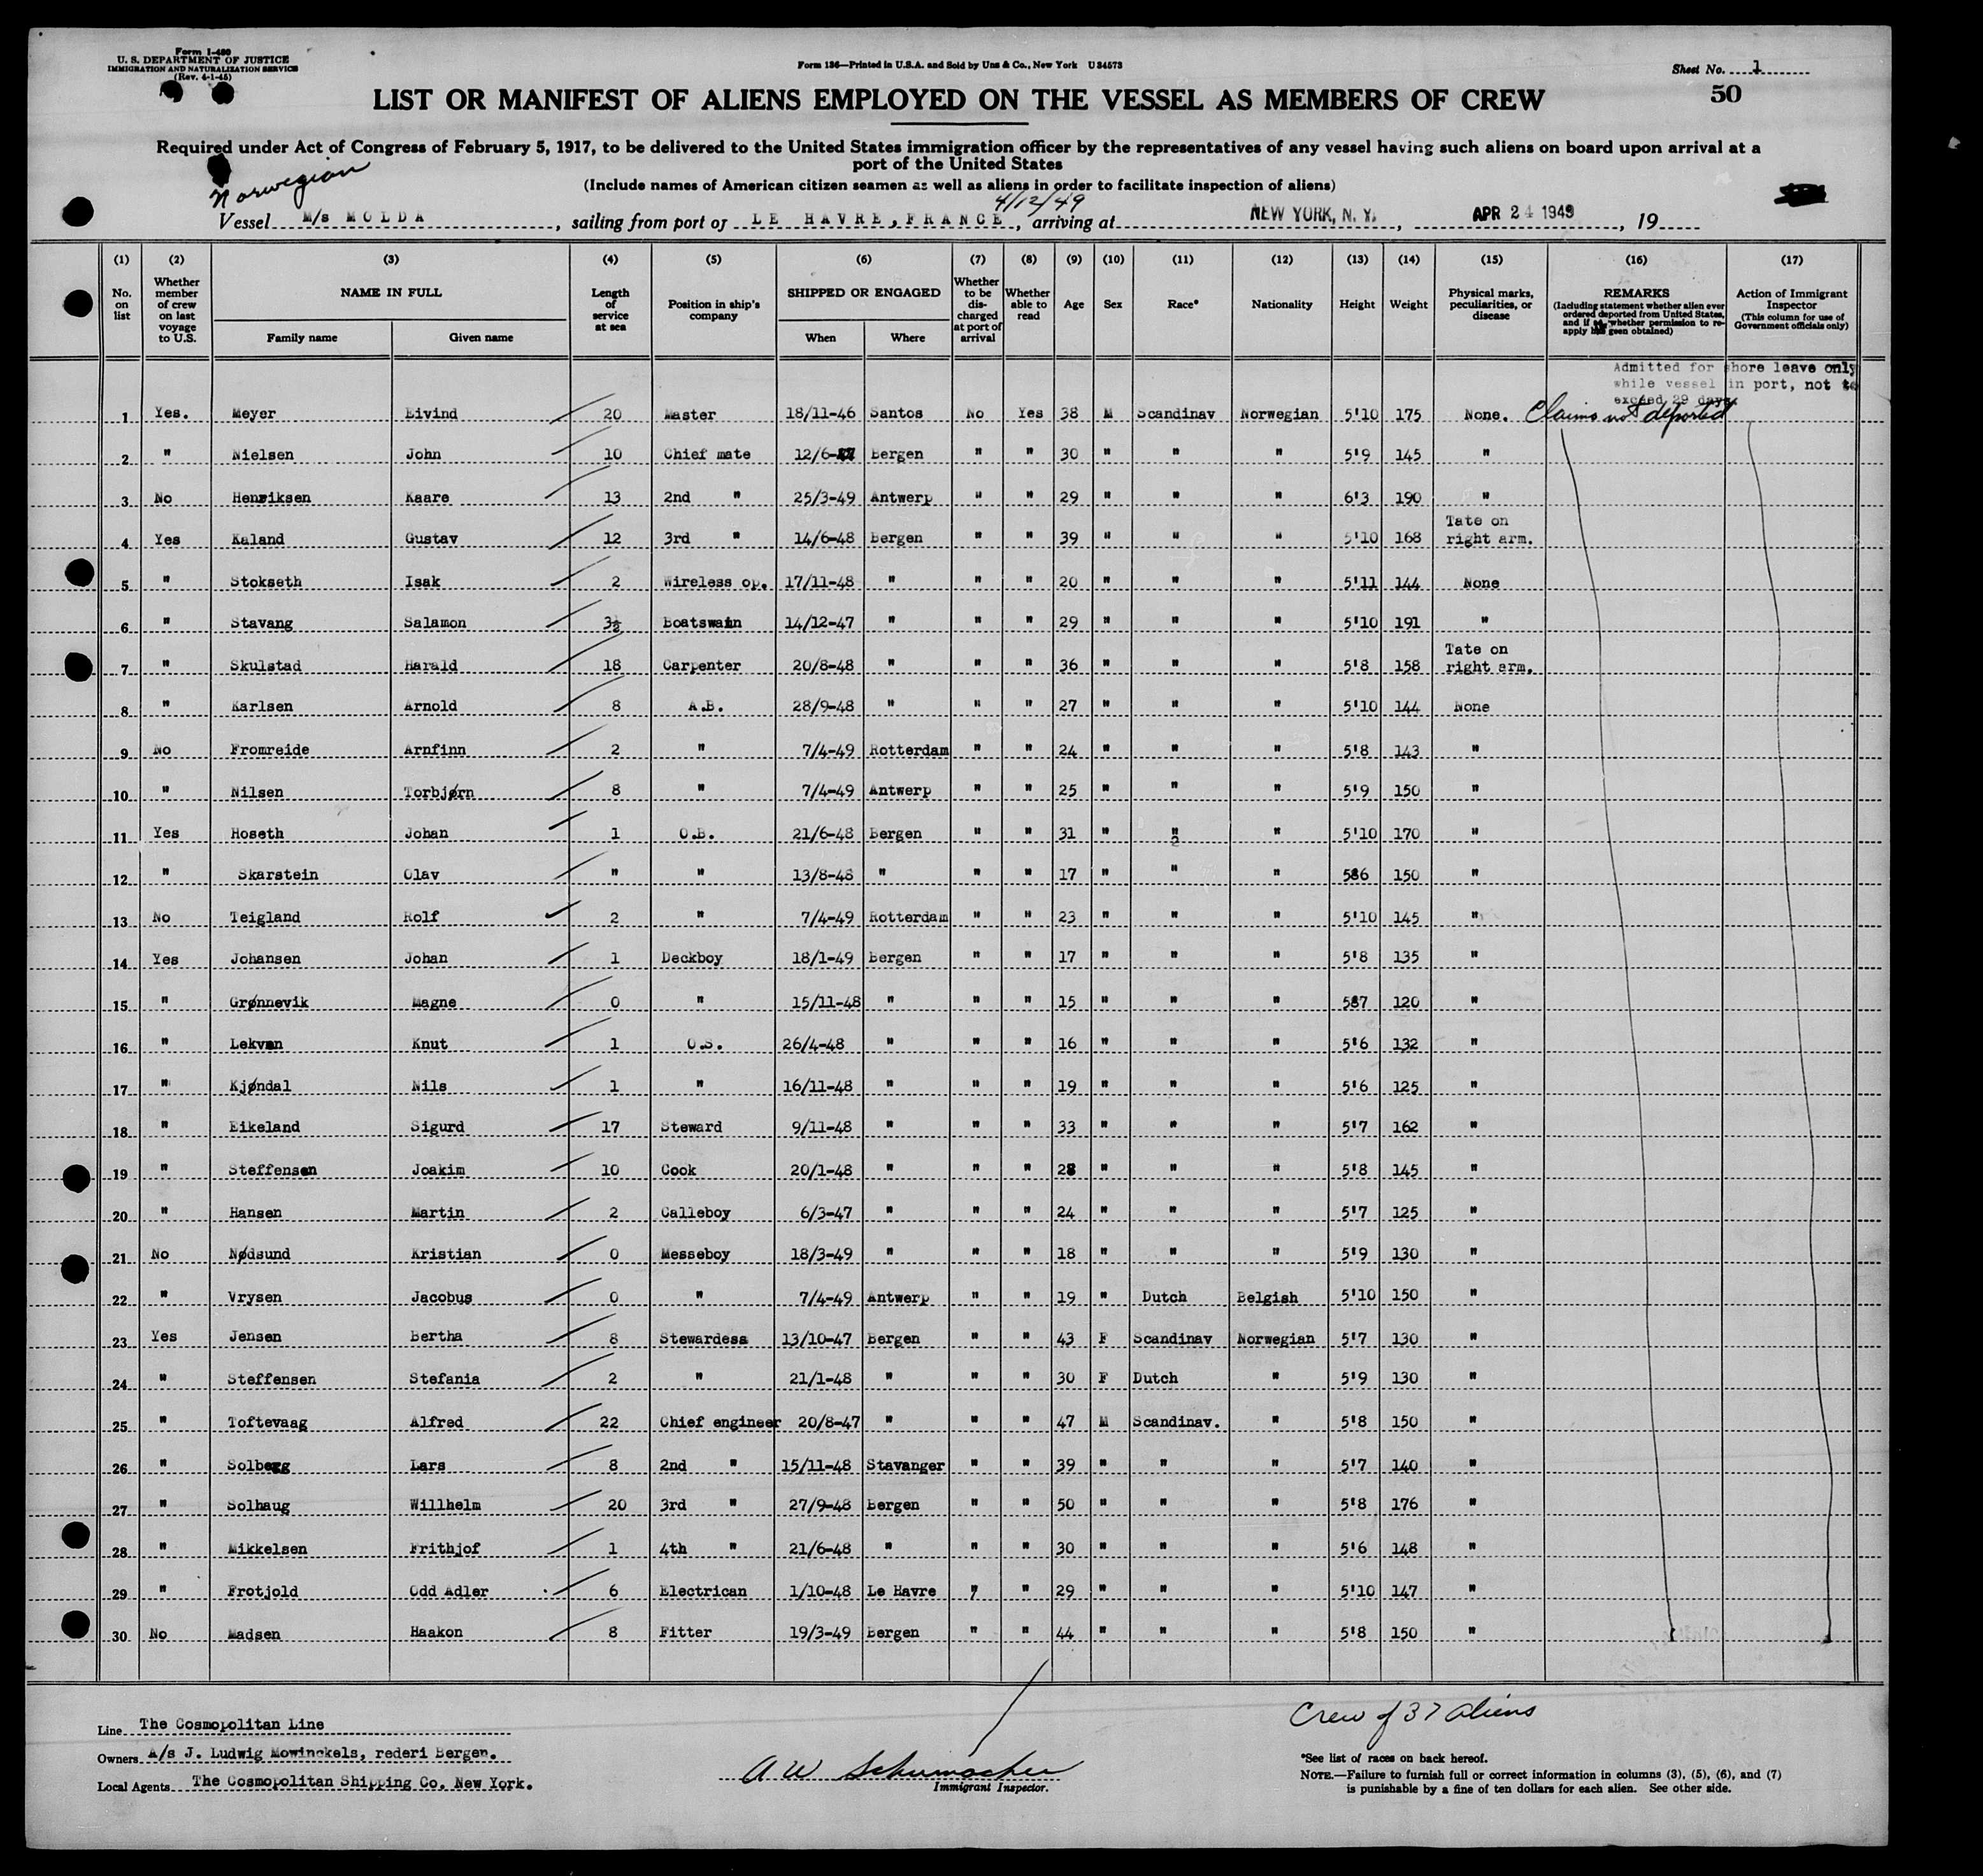 Form I-480
U. S. DEPARTMENT OF JUSTICE
IMMIGRATION AND NATURALIZATION SERVICE
(Rev. 4-1-45)
Form 136—Printed in U.S.A. and Sold by Unz & Co., New York U 34573
Sheet No. 1
50
LIST OR MANIFEST OF ALIENS EMPLOYED ON THE VESSEL AS MEMBERS OF CREW
Required under Act of Congress of February 5, 1917, to be delivered to the United States immigration officer by the representatives of any vessel having such aliens on board upon arrival at a
port of the United States
(Include names of American citizen seamen as well as aliens in order to facilitate inspection of aliens)
Norwegian
4/12/49
Vessel M/s MOLDA, sailing from port of LE HAVRE, FRANCE, arriving at NEW YORK, N. Y., APR 24 1949, 19
(1) No. on list (2) Whether member of crew on last voyage to U.S. (3) NAME IN FULL Family name Given name (4) Length of service at sea (5) Position in ship's company (6) SHIPPED OR ENGAGED When Where (7) Whether to be discharged at port of arrival (8) Whether able to read (9) Age (10) Sex (11) Race* (12) Nationality (13) Height (14) Weight (15) Physical marks, peculiarities, or disease (16) REMARKS (Including statement whether alien ever ordered deported from United States, and if so, whether permission to reapply has been obtained) (17) Action of Immigrant Inspector (This column for use of Government officials only)
Admitted for shore leave only
while vessel in port, not to
exceed 29 days
1 Yes. Meyer Eivind 20 Master 18/11-46 Santos No Yes 38 M Scandinav Norwegian 5'10 175 None. Claims not deported
2 " Nielsen John 10 Chief mate 12/6-47 Bergen " " 30 " " " 5'9 145 "
3 No Henriksen Kaare 13 2nd " 25/3-49 Antwerp " " 29 " " " 6'3 190 "
4 Yes Kaland Gustav 12 3rd " 14/6-48 Bergen " " 39 " " " 5'10 168 Tate on right arm.
5 " Stokseth Isak 2 Wireless op. 17/11-48 " " " 20 " " " 5'11 144 None
6 " Stavang Salamon 3½ Boatswain 14/12-47 " " " 29 " " " 5'10 191 "
7 " Skulstad Harald 18 Carpenter 20/8-48 " " " 36 " " " 5'8 158 Tate on right arm.
8 " Karlsen Arnold 8 A.B. 28/9-48 " " " 27 " " " 5'10 144 None
9 No Fromreide Arnfinn 2 " 7/4-49 Rotterdam " " 24 " " " 5'8 143 "
10 " Nilsen Torbjørn 8 " 7/4-49 Antwerp " " 25 " " " 5'9 150 "
11 Yes Hoseth Johan 1 O.B. 21/6-48 Bergen " " 31 " " " 5'10 170 "
2
12 " Skarstein Olav " " 13/8-48 " " " 17 " " " 586 150 "
13 No Teigland Rolf 2 " 7/4-49 Rotterdam " " 23 " " " 5'10 145 "
14 Yes Johansen Johan 1 Deckboy 18/1-49 Bergen " " 17 " " " 5'8 135 "
15 " Grønnevik Magne 0 " 15/11-48 " " " 15 " " " 587 120 "
16 " Lekven Knut 1 O.S. 26/4-48 " " " 16 " " " 5'6 132 "
17 " Kjøndal Nils 1 " 16/11-48 " " " 19 " " " 5'6 125 "
18 " Eikeland Sigurd 17 Steward 9/11-48 " " " 33 " " " 5'7 162 "
19 " Steffensen Joakim 10 Cook 20/1-48 " " " 28 " " " 5'8 145 "
20 " Hansen Martin 2 Galleboy 6/3-47 " " " 24 " " " 5'7 125 "
21 No Nødsund Kristian 0 Messeboy 18/3-49 " " " 18 " " " 5'9 130 "
22 " Vrysen Jacobus 0 " 7/4-49 Antwerp " " 19 " Dutch Belgish 5'10 150 "
23 Yes Jensen Bertha 8 Stewardess 13/10-47 Bergen " " 43 F Scandinav Norwegian 5'7 130 "
24 " Steffensen Stefania 2 " 21/1-48 " " " 30 F Dutch " 5'9 130 "
25 " Toftevaag Alfred 22 Chief engineer 20/8-47 " " " 47 M Scandinav. " 5'8 150 "
26 " Solberg Lars 8 2nd " 15/11-48 Stavanger " " 39 " " " 5'7 140 "
27 " Solhaug Willhelm 20 3rd " 27/9-48 Bergen " " 50 " " " 5'8 176 "
28 " Mikkelsen Frithjof 1 4th " 21/6-48 " " " 30 " " " 5'6 148 "
29 " Frotjold Odd Adler 6 Electrican 1/10-48 Le Havre " " 29 " " " 5'10 147 "
30 No Madsen Haakon 8 Fitter 19/3-49 Bergen " " 44 " " " 5'8 150 "
Line The Cosmopolitan Line
Owners A/s J. Ludwig Mowinckels, rederi Bergen.
Local Agents The Cosmopolitan Shipping Co. New York.
A W Schumacher
Immigrant Inspector.
Crew of 37 aliens
*See list of races on back hereof.
NOTE.—Failure to furnish full or correct information in columns (3), (5), (6), and (7)
is punishable by a fine of ten dollars for each alien. See other side.